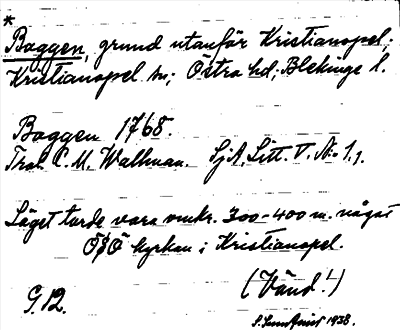 *
Baggen, grund utanför Kristianopel;
Kristianopel sn; Östra hd; Blekinge l.
Baggen 1768.
Trol. C. M. Wallman. SjA, Litt. V. No 1,1
Läget torde vara omkr. 300-400 m. något
ÖSÖ kyrkan i Kristianopel.
G. 12. (Vänd!)
1938.